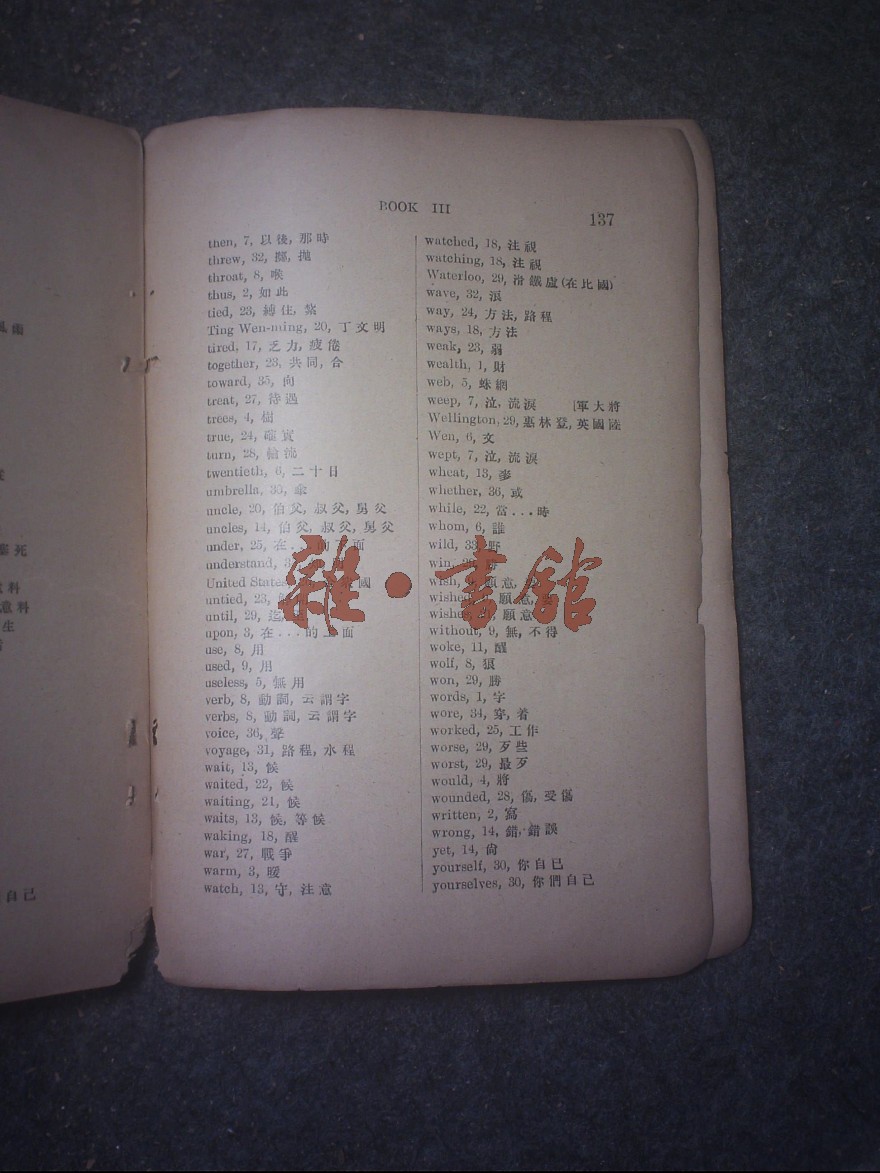 BOOK III
137
then, 7, 以後, 那時
threw, 32, 擲, 拋
throat, 8, 喉
thus, 2, 如此
tied, 23, 縛住, 紮
Ting Wen-ming, 20, 丁文明
tired, 17, 乏力, 疲倦
together, 23, 共同, 合
toward, 35, 向
treat, 27, 待遇
trees, 4, 樹
true, 24, 確實
turn, 28, 輪流
twentieth, 6, 二十日
umbrella, 33, 傘
uncle, 20, 伯父, 叔父, 舅父
uncles, 14, 伯父, 叔父, 舅父
under, 25, 在...的下面
understand,
United States, 國
untied, 23,
until, 29, 迄
upon, 3, 在...的上面
use, 8, 用
used, 9, 用
useless, 5, 無用
verb, 8, 動詞, 云謂字
verbs, 8, 動詞, 云謂字
voice, 36, 聲
voyage, 31, 路程, 水程
wait, 13, 候
waited, 22, 候
waiting, 21, 候
waits, 13, 候, 等候
waking, 18, 醒
war, 27, 戰爭
warm, 3, 暖
watch, 13, 守, 注意
watched, 18, 注視
watching, 18, 注視
Waterloo, 29, 滑鐵盧(在比國)
wave, 32, 浪
way, 24, 方法, 路程
ways, 18, 方法
weak, 23, 弱
wealth, 1, 財
web, 5, 蛛網
weep, 7, 泣, 流淚 [軍大將
Wellington, 29, 惠林登, 英國陸
Wen, 6, 文
wept, 7, 泣, 流淚
wheat, 13, 麥
whether, 36, 或
while, 22, 當...時
whom, 6, 誰
wild, 33, 野
win,
wish, 願意,
wished, 願意,
wishes, 願意
without, 9, 無, 不得
woke, 11, 醒
wolf, 8, 狼
won, 29, 勝
words, 1, 字
wore, 34, 穿, 着
worked, 25, 工作
worse, 29, 歹些
worst, 29, 最歹
would, 4, 將
wounded, 28, 傷, 受傷
written, 2, 寫
wrong, 14, 錯, 錯誤
yet, 14, 尙
yourself, 30, 你自已
yourselves, 30, 你們自己
雜·書館
死
料
意料
生
自己